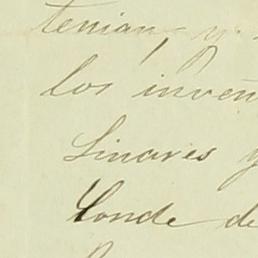 tenian, y
los inven
Linares y
Conde de